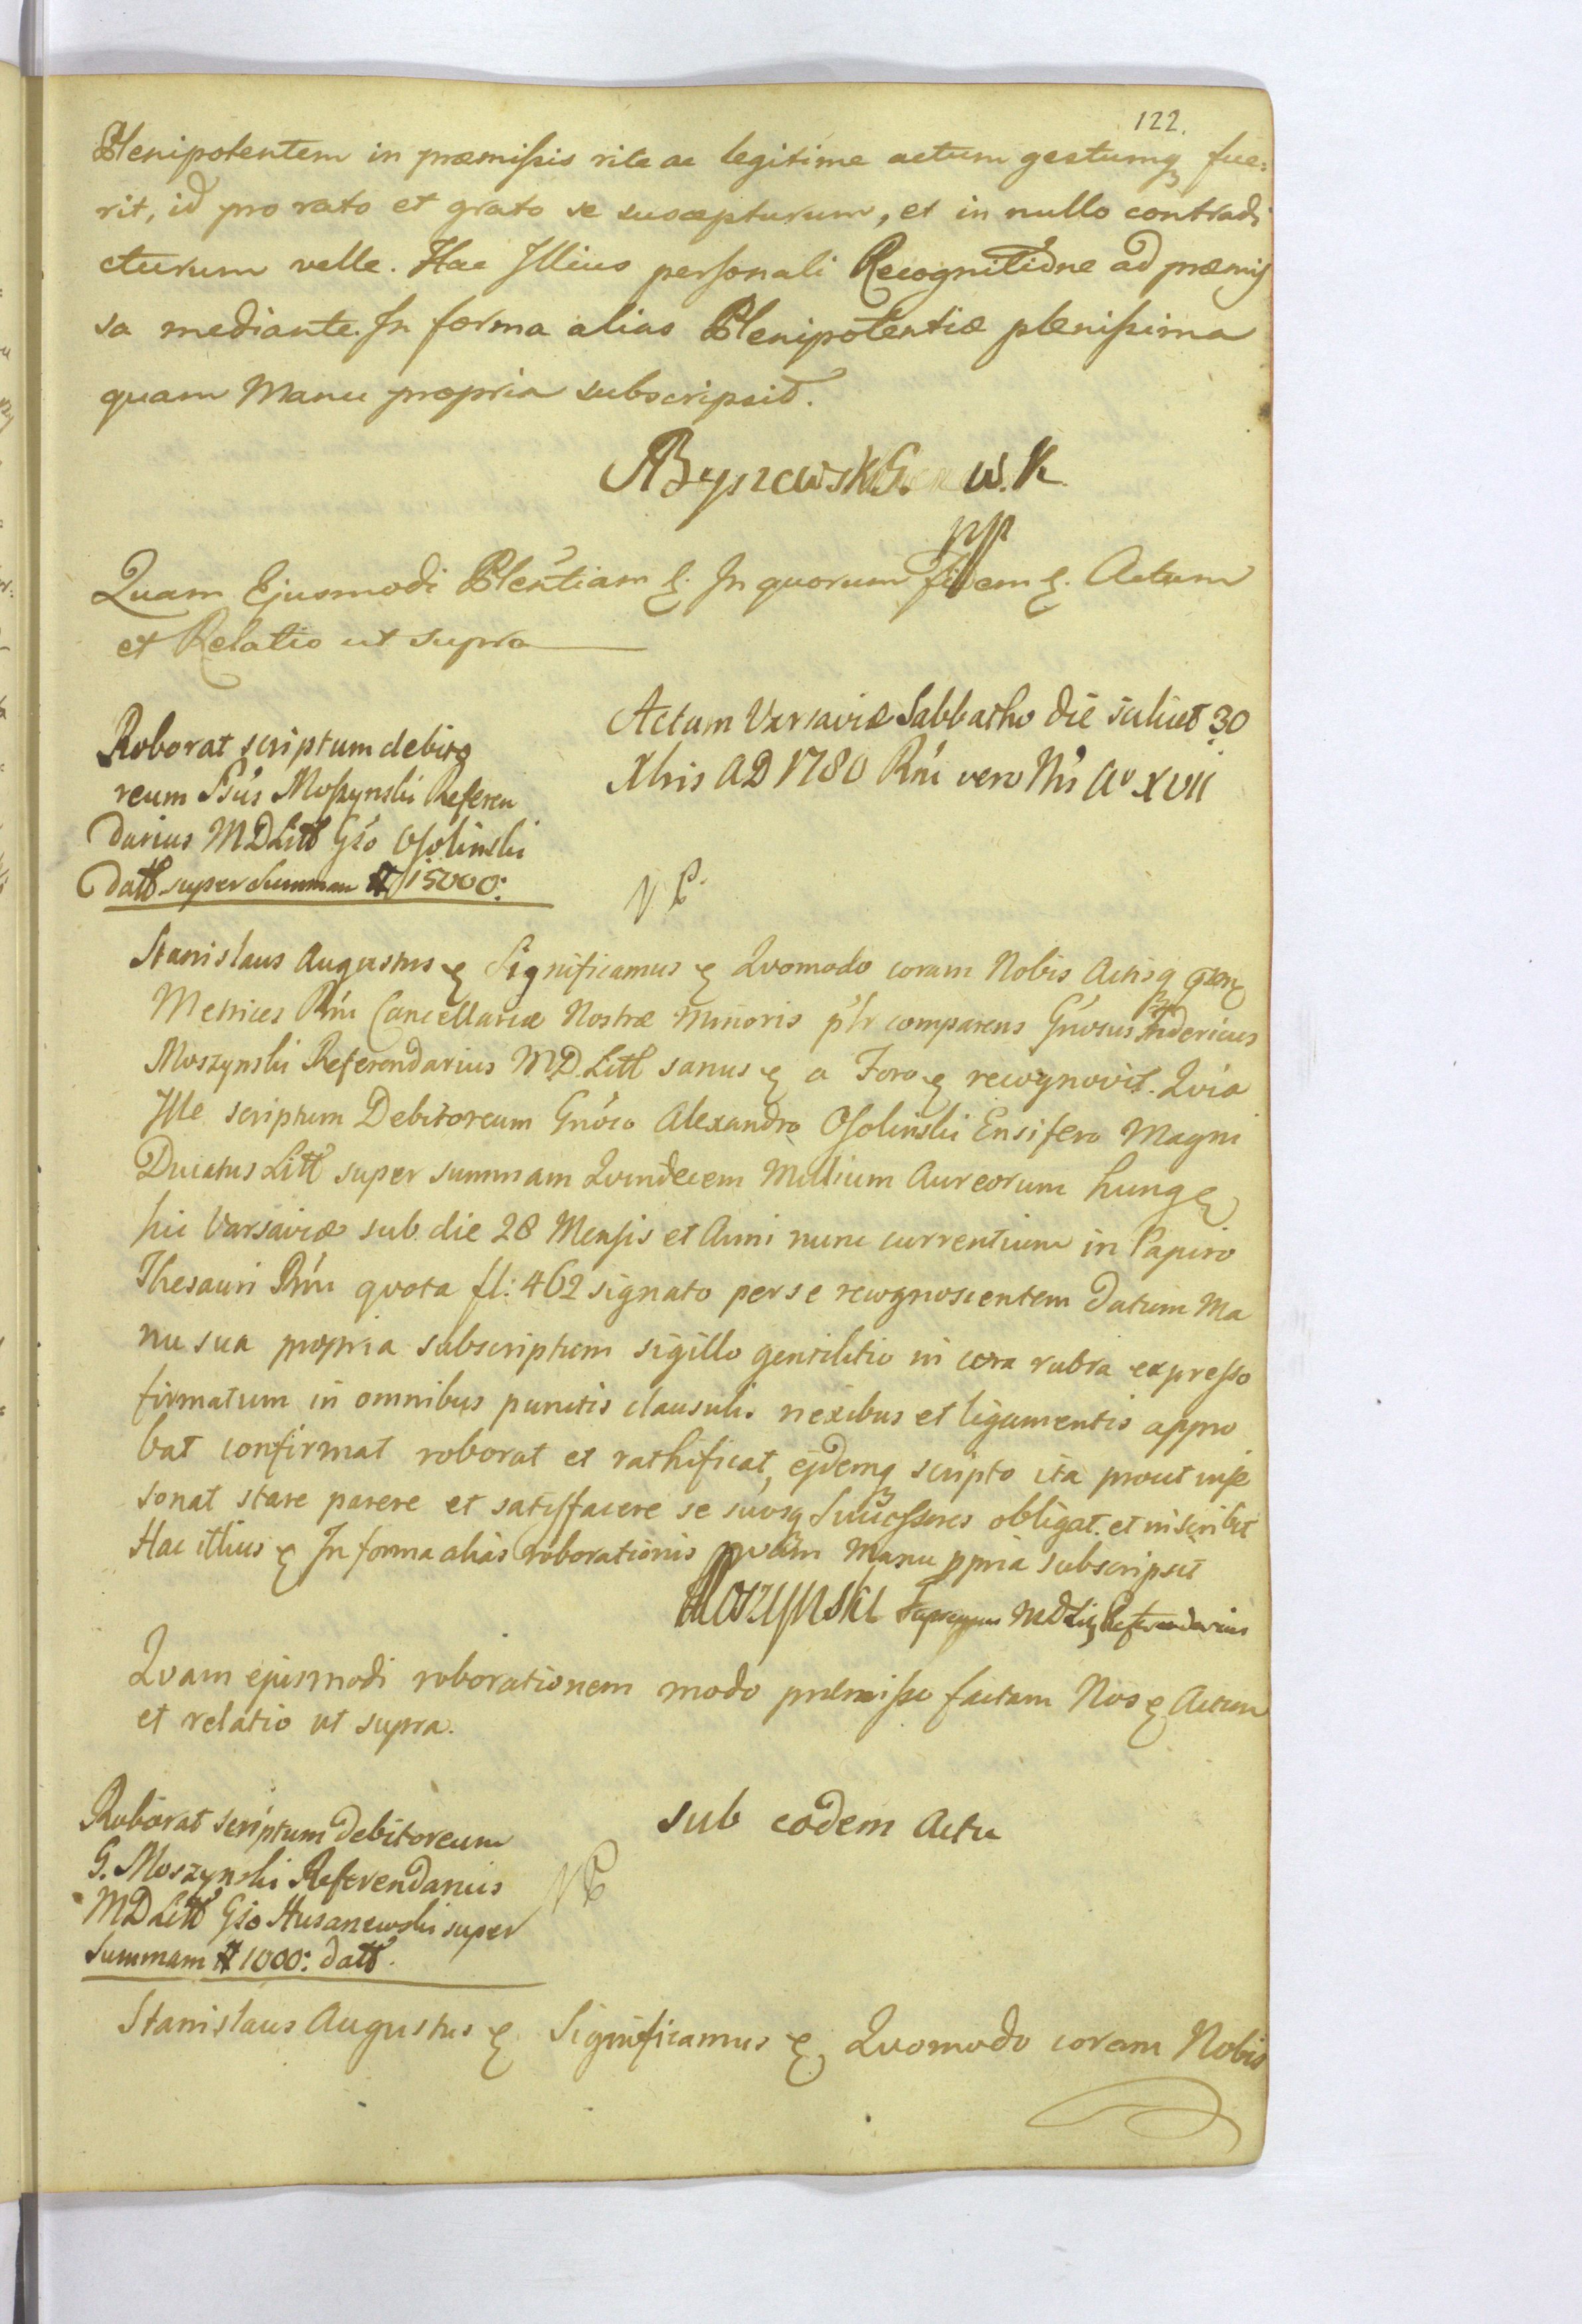 122.
Plenipotentem in præmissis rite ac legitime actum gestumq fue=
rit, id pro rato et grato se suscepturum, et in nullo contradi
cturum velle. Hac Illius personali Recognitione ad præmis
sa mediante. In forma alias Plenipotentiæ plenissima
quam Manu propria subscripsit.
w. K
mp
Quam Ejusmodi Plentiam &. In quorum fidem &. Actum
et Relatio ut supra
Actum Varsaviæ Sabbatho die scilicet 30
Xbris AD 1780 Rni vero Nri Ao XVII
Roborat scriptum debito
reum Moszynski Referen
darius MDLitt Gso Ossolinski
datt super Summam # 15000:
Stanislaus Augustus & Significamus & Quomodo coram Nobis Actisq
Metrices Rni Cancellariæ Nostræ Minoris plr comparens Gnosus Fridericus
Moszynski Referendarius M.D. Litt sanus & a Foro & recognovit. Quia
Ille scriptum Debitoreum Gnoso Alexandro Ossolinski Ensifero Magni
Ducatus Litt super summam Quindecem Millium Aureorum hung &
hic Varsaviæ sub die 28 Mensis et Anni nunc currentium in Papiro
Thesauri Rni quota fl: 462 signato per se recognoscentem datum Ma
nu sua propria subscriptum sigillo gentilitio in cera rubra expresso
firmatum in omnibus punctis clausulis nexibus et ligamentis appro
bat confirmat roborat et rathificat, ejdemq scripto ita prout in se
sonat stare parere et satisfacere se suosq Successores obligat et inscribit
Hac illius & In forma alias roborationis quam Manu ppria subscripsit
Moszynski MDLit Referendarius
Quam ejusmodi roborationem modo præmisso factam Nos & Actum
et relatio ut supra.
sub eodem Actu
Roborat scriptum debitoreum
G. Moszynski Referendarius
MDLitt Gso Husarzewski super
Summam # 1000: datt.
Stanislaus Augustus & Significamus & Quomodo coram Nobis